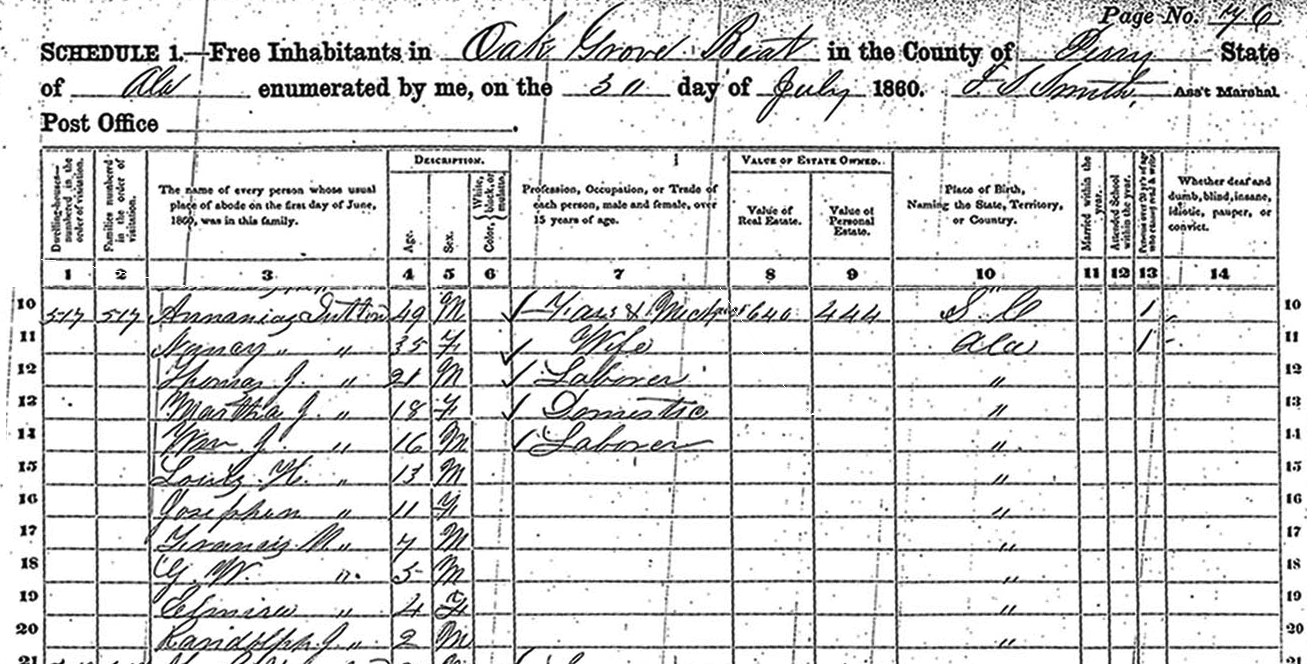 Page No. 76
SCHEDULE 1.—Free Inhabitants in Oak Grove Beat in the County of Perry State
of Ala enumerated by me, on the 30 day of July 1860. Ass't Marshal.
Post Office
DESCRIPTION. VALUE OF ESTATE OWNED.
Dwelling-houses—numbered in the order of visitation.
Families numbered in the order of visitation.
The name of every person whose usual place of abode on the first day of June, 1860, was in this family.
Age.
Sex.
Color, { White, black, or mulatto.
Profession, Occupation, or Trade of each person, male and female, over 15 years of age.
Value of Real Estate.
Value of Personal Estate.
Place of Birth, Naming the State, Territory, or Country.
Married within the year.
Attended School within the year.
Persons over 20 y'rs of age who cannot read & write.
Whether deaf and dumb, blind, insane, idiotic, pauper, or convict.
1 2 3 4 5 6 7 8 9 10 11 12 13 14
10 517 517 Annanias Sutton 49 M 640 444 S. C 1 10
11 Nancy " " 35 F Wife Ala 1 11
12 Thomas J. " 21 M Laborer " 12
13 Martha J. " 18 F Domestic " 13
14 Wm J " 16 M Laborer " 14
15 Louis H. " 13 M " 15
16 Josephin " 11 F " 16
17 Francis M " 7 M " 17
18 G. W. " 5 M " 18
19 Elmira " 4 F " 19
20 Randolph J. " 2 M " 20
21 21